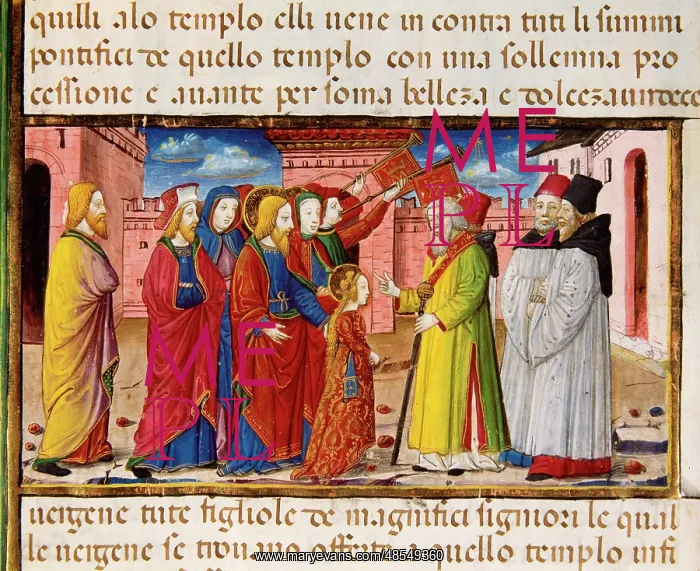 quilli alo templo elli uene in contra tuti li summi
pontifici de quello templo con una sollemna pro
cessione e auante per soma belleza e dolceza
ME
PL
ME
PL
uergene tute figliole de magnifici signiori le qual
le uergene se trouano a quello templo infi
www.maryevans.com/48549360